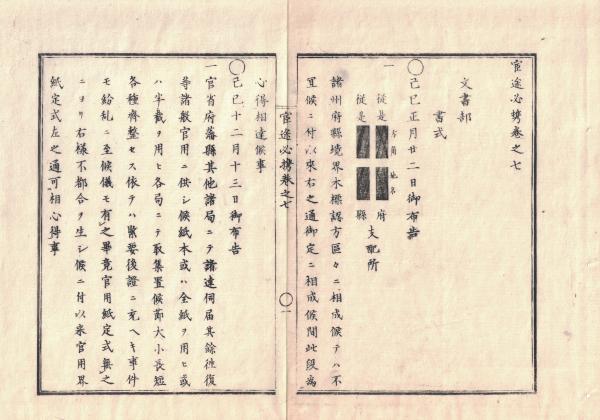 官途必携巻之七
文書部
書式
○己巳正月廿二日御布告
一
従是 方角 地名 府
従是 縣
支配所
諸州府縣境界木標認方區々ニ相成候テハ不
宜候ニ付以来右之通御定ニ相成候間此段為
心得相達候事
○己巳十二月十三日御布告
一官省府藩縣其他諸局ニテ諸達伺届其餘往復
等諸般官用ニ供シ候紙本或ハ全紙ヲ用ヒ或
ハ半截ヲ用ヒ各局ニテ取集置候節大小長短
各種齊整セス依テハ緊要後證ニ充ヘキ事件
モ紛乱ニ至候儀モ有之畢竟官用紙定式無之
ニヨリ右様不都合ヲ生シ候ニ付以来官用界
紙定式左之通可相心得事
官途必携巻之七
一